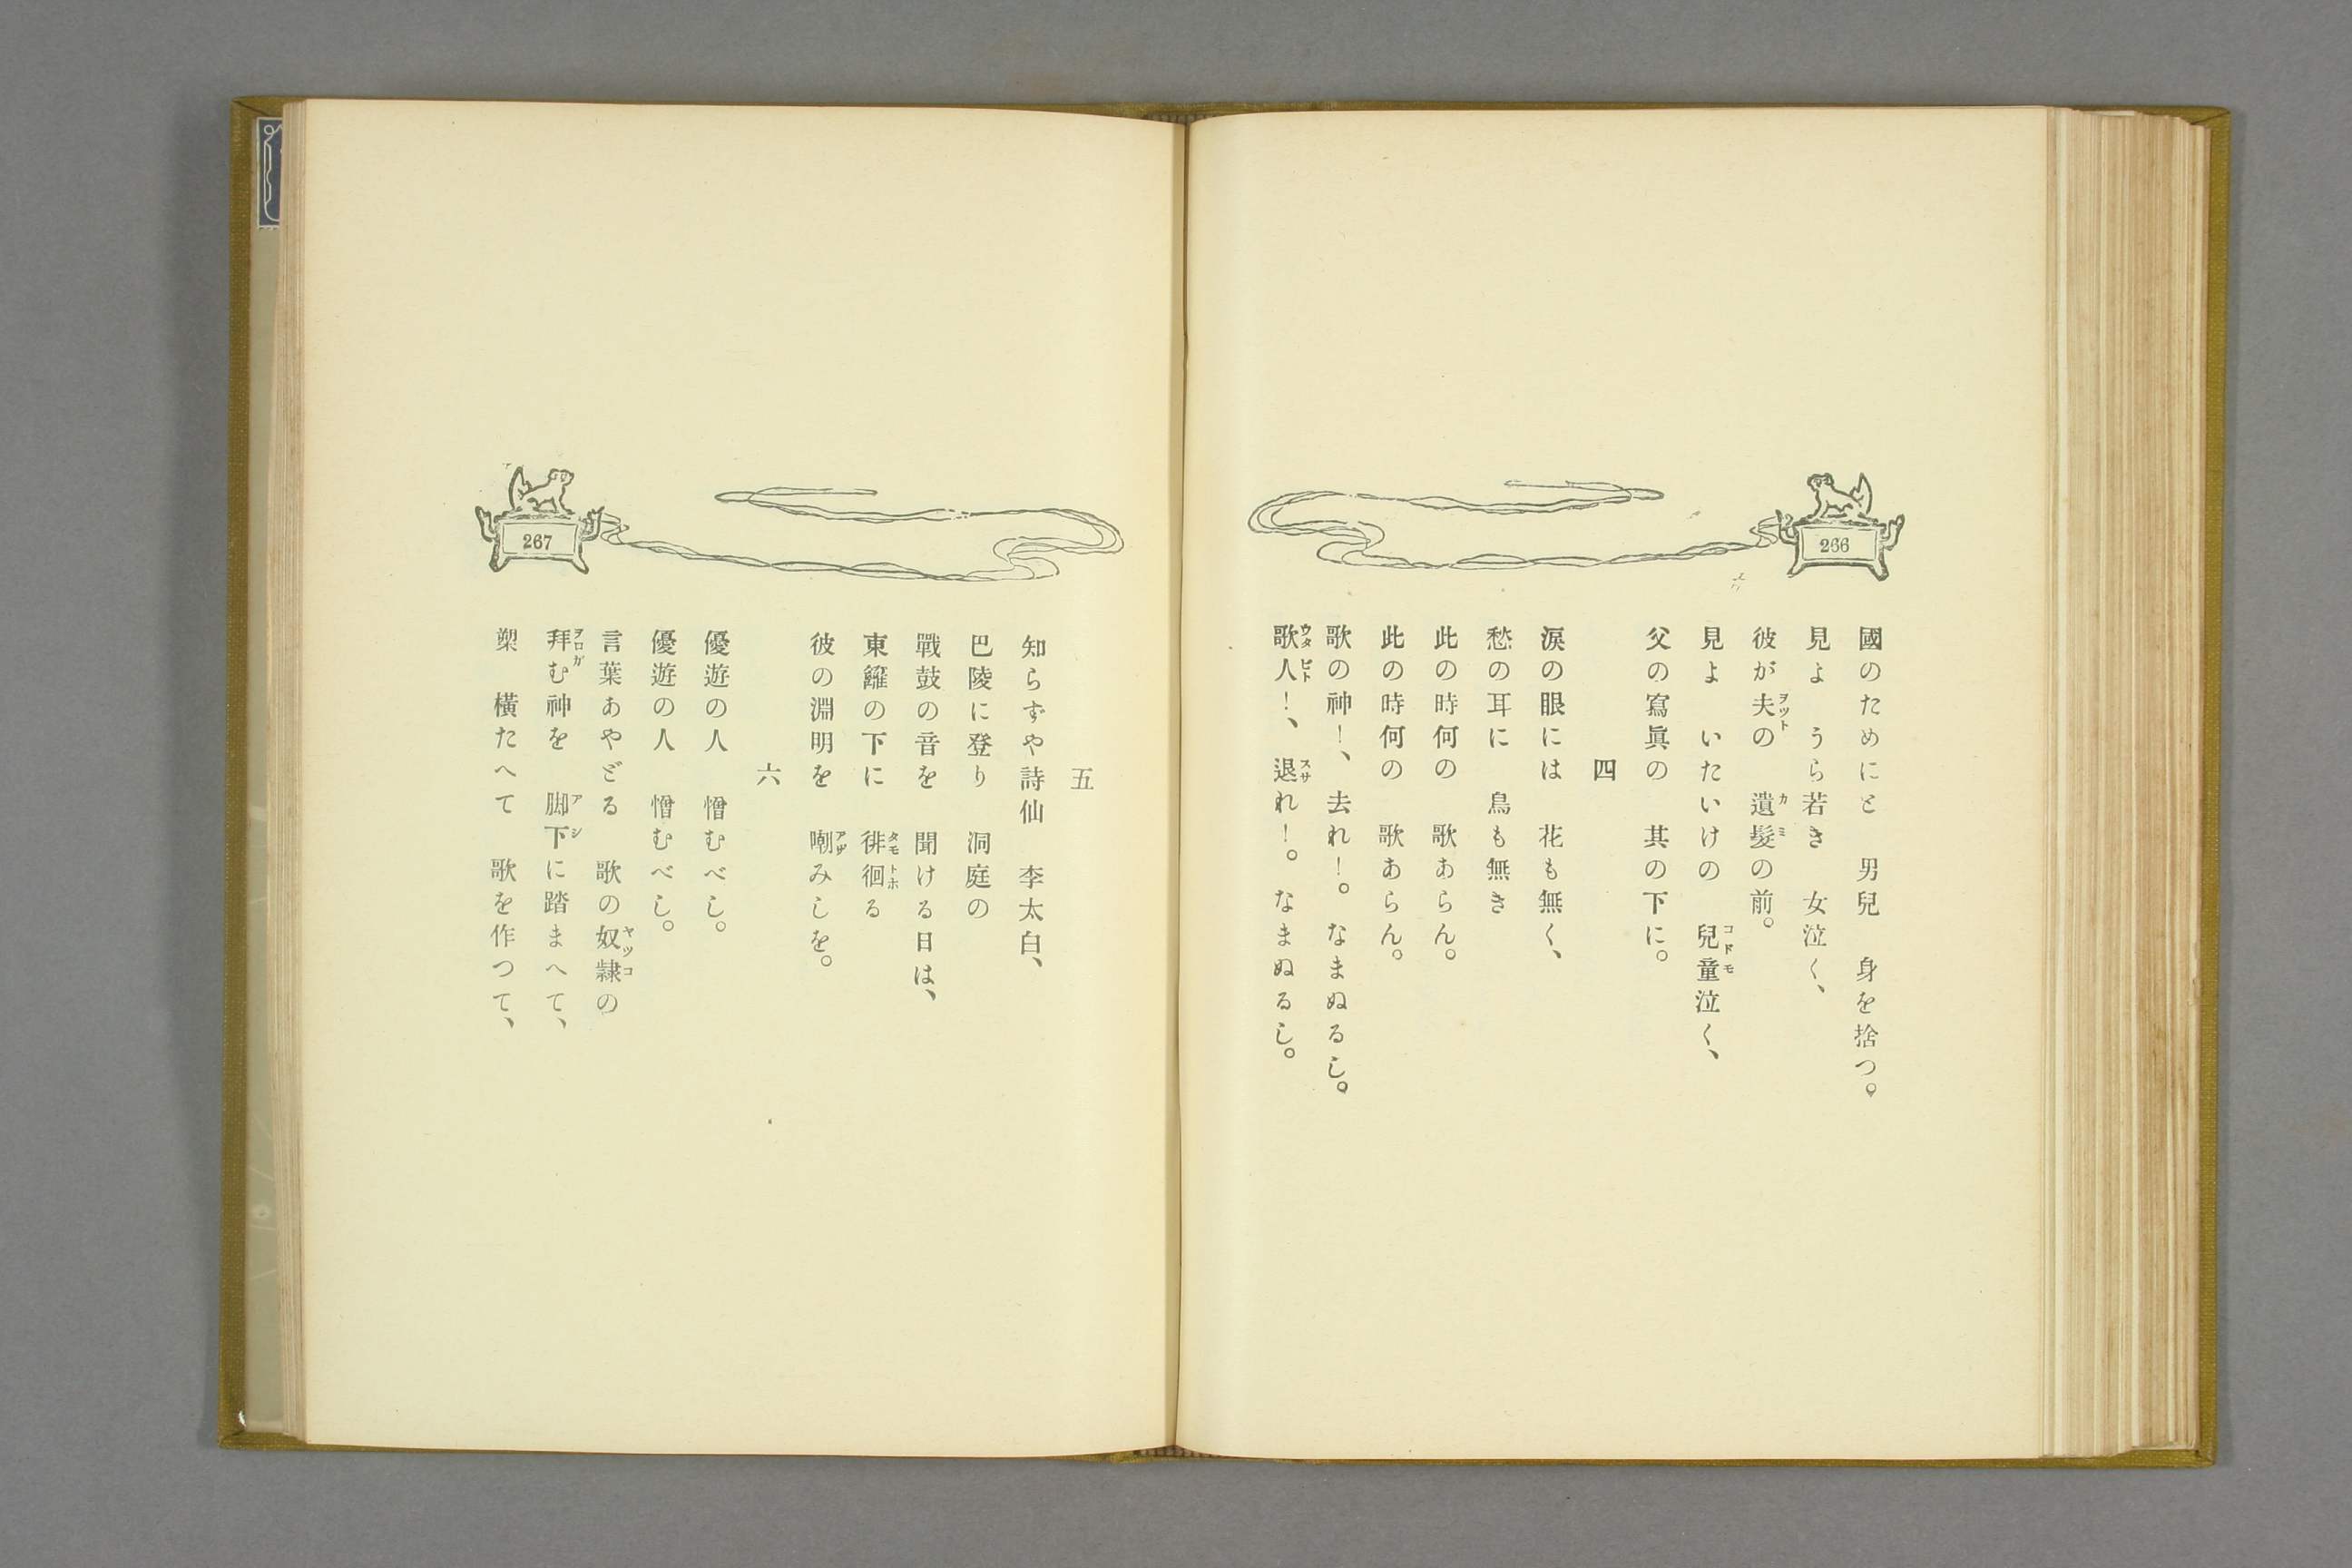 266
國のためにと　男兒　身を捨つ。
見よ　うら若き　女泣く、
彼が夫の　遺髮の前。
見よ　いたいけの　兒童泣く、
父の寫眞の　其の下に。
四
淚の眼には　花も無く、
愁の耳に　鳥も無き
此の時何の　歌あらん。
此の時何の　歌あらん。
歌の神！、去れ！。なまぬるし。
歌人！、退れ！。なまぬるし。
267
五
知らずや詩仙　李太白、
巴陵に登り　洞庭の
戰鼓の音を　聞ける日は、
東籬の下に　徘徊る
彼の淵明を　嘲みしを。
六
優遊の人　憎むべし。
優遊の人　憎むべし。
言葉あやどる　歌の奴隸の
拜む神を　脚下に踏まへて、
槊　橫たへて　歌を作つて、